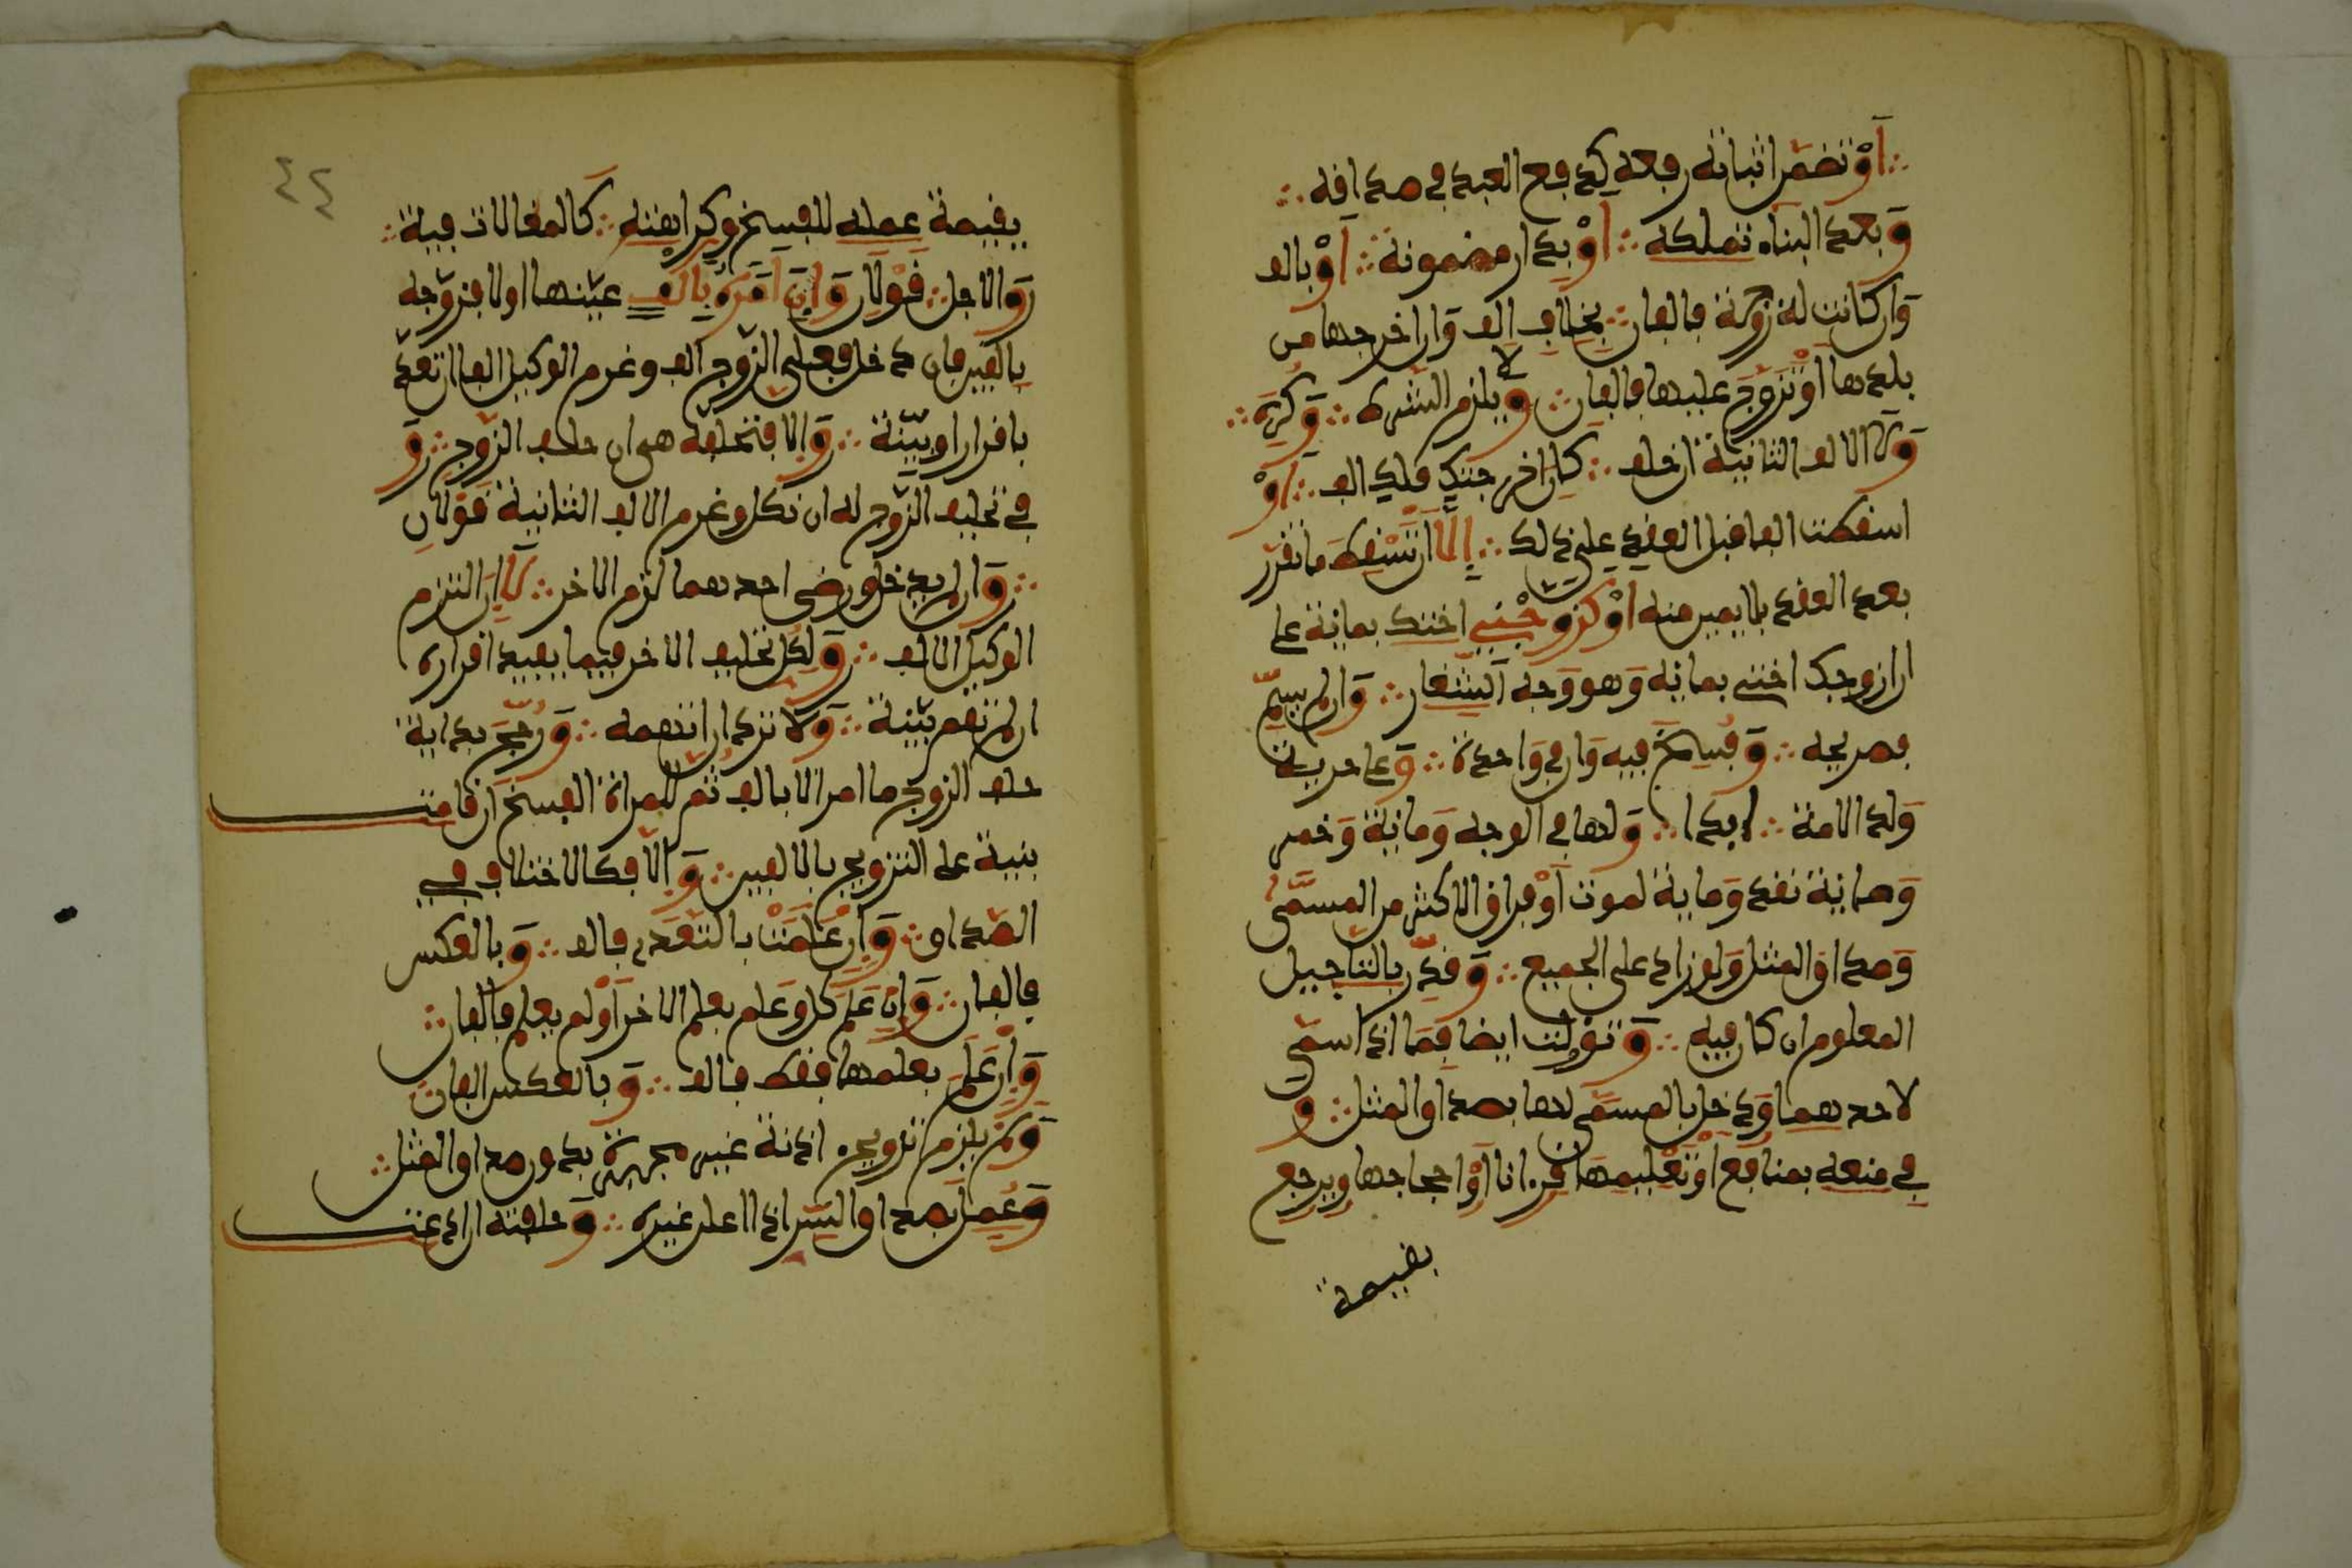 أو تضمن اثباته رفعه كدفع العبد في صداقه
وبعد البناء تملكه أو بدار مضمونة أو بالف
وان كانت له زوجة فالفان بخلاف الف وان اخرجها من
بلدها أو تزوج عليها فالفان ولا يلزم الشرط وكره
ولا الالف الثانية ان خالف كان اخرجتك فلك الف أو
اسقطت الفا قبل العقد على ذلك إلا ان تسقط ما تقرر
بعد العقد بلا يمين منه أو كزوجني اختك بمائة على
ان ازوجك اختي بمائة وهو وجه الشغار وان لم يسم
فصريحه وفسخ فيه وان في واحدة وعلى حرية
ولد الامة ابدا ولها في الوجه ومائة وخمر
ومائة نقد ومائة لموت أو فراق الاكثر من المسمى
وصداق المثل ولو زاد على الجميع وقدر بالتاجيل
المعلوم ان كان فيه وتؤولت ايضا فيما اذا سمى
لاحدهما ودخل بالمسمى لها بصداق المثل و
في منعه بمنافع أو تعليمها قرءانا أو احجاجها ويرجع
بقيمة
٤٤
بقيمة عمله للفسخ وكراهته كالمغالات فيه
والاجل قولان وان امره بالف عينها اولا فزوجه
بالفين فان دخل فعلى الزوج الف وغرم الوكيل الفا ان تعدى
باقرار او بينة والا فتحلف هي ان حلف الزوج و
في تحليف الزوج له ان نكل وغرم الالف الثانية قولان
وان لم يدخل ورضي احدهما لزم الاخر لا ان التزم
الوكيل الالف ولكل تحليف الاخر فيما يفيد اقراره
ان لم تقم بينة ولا ترد ان اتهمه ورجح بداية
حلف الزوج ما امر الا بالف ثم للمراة الفسخ ان قامت
بينة على التزويج بالالفين والا فكالاختلاف في
الصداق وان علمت بالتعدي فالف وبالعكس
فالفان وان علم كل وعلم بعلم الاخر أو لم يعلم فالفان
وان علم بعلمها فقط فالف وبالعكس الفان
ولم يلزم تزويج اذنة غير مجبرة بدون صداق المثل
وعمل بصداق السر اذا اعلن غيره وحلفته ان ادعت